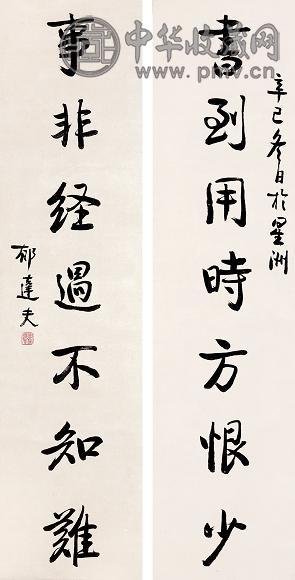 書到用時方恨少
辛巳冬日於星洲
事非经過不知難
郁達夫
中华收藏网
www.pmv.cn